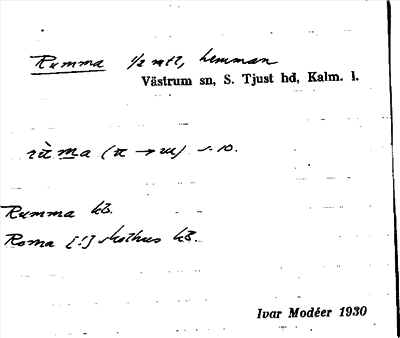 Rumma 1/2 mtl, hemman
Västrum sn, S. Tjust hd, Kalm. l.
Rumma kb.
Roma [!] skolhus kb.
Ivar Modéer 1930